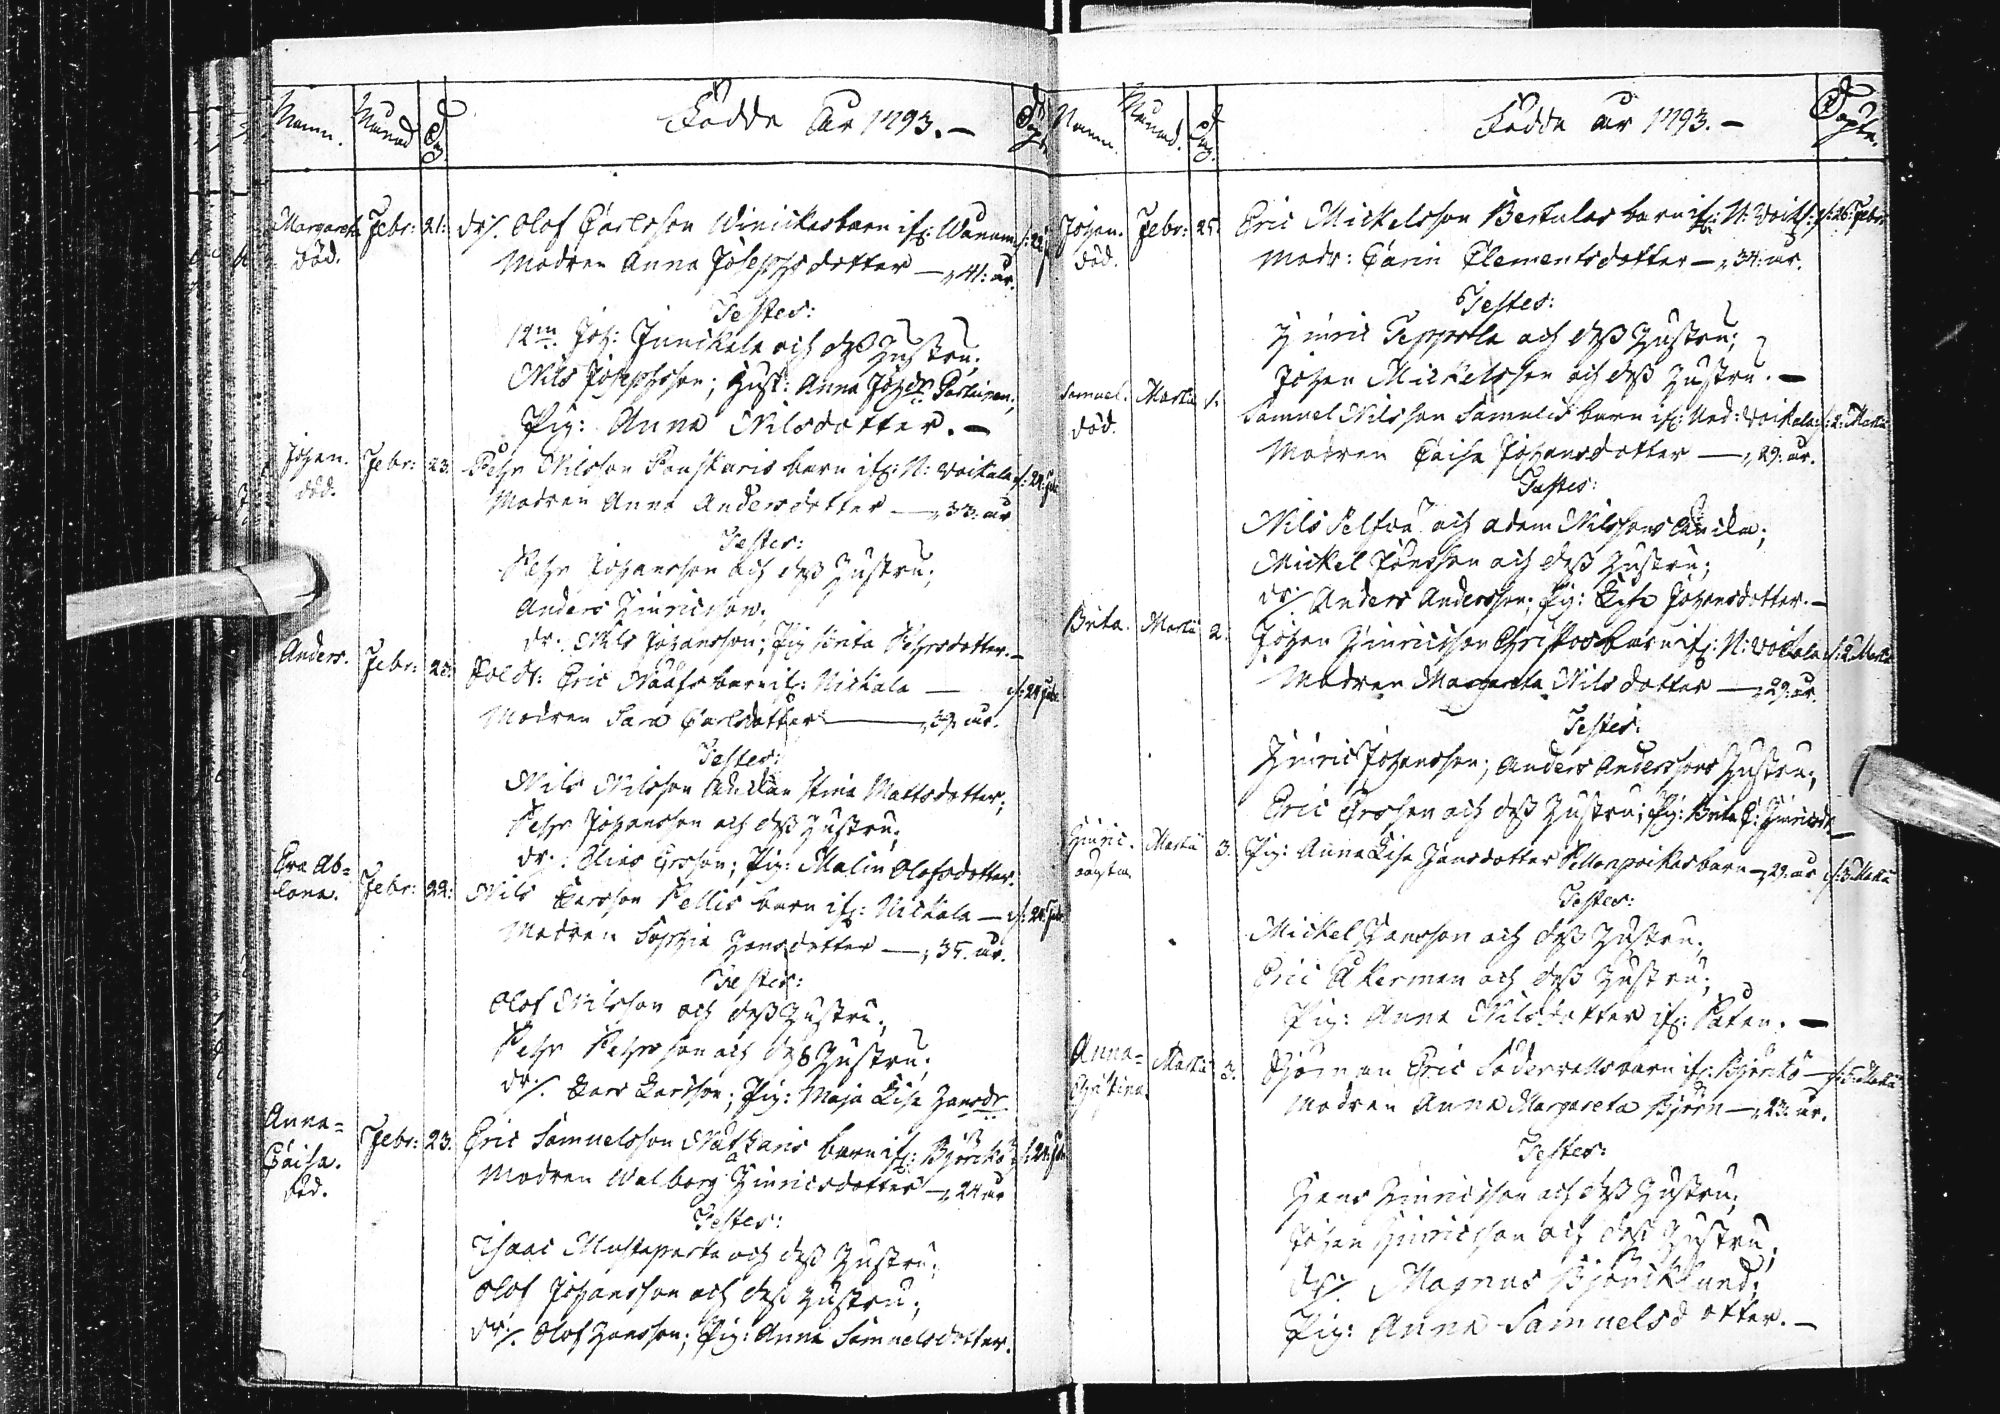 Namn. Månad Dag Födde år 1793.— Döpte
Margareta Febr: 21: dr/. Olof Carlsson Winickas barn if: Wånum /: 22
död. Modren Anna Josephsdotter —, 41: år.
Testes:
12m. Joh: Junickala och dess Hustru;
Nils Josephsson; Hust: Anna Joh:dr
Pig: Anna Nilsdotter.—
Johan. Febr: 23. Pehr Nilsson barn if: N: Woikala /: 24: Febr
död. Modren Anna Andersdotter —, 33: år
Testes:
Pehr Johansson och dess Hustru;
Anders Hinricsson;
dr: Nils Johansson; Pig Brita Pehrsdotter.—
Anders. Febr: 23: Soldt: Eric barn if: Nickala — /: 24 Febr
Modren Sara Carlsdotter —, 39: år.
Testes:
Nils Nilsson Enckan Stina Mattsdotter;
Pehr Johansson och dess Hustru;
dr: Elias Ersson; Pig: Malin Olofsdotter.
Eva Ab=
lona. Febr: 22: Nils Larsson Pellis barn if: Nickala — /: 24: Febr
Modren Sophia Hansdotter —, 35. år.
Testes:
Olof Nilsson och dess Hustru;
Pehr Pehrsson och dess Hustru;
dr/. Lars Larsson; Pig: Maja Lisa Hansdr
Anna=
Caisa. Febr: 23. Eric Samuelsson barn if: Björckö /: 24: Febr
död. Modren Walborg Hinricsdotter —, 24 år
Testes:
Isaac Mustaparta och dess Hustru;
Olof Johansson och dess Hustru;
dr/. Olof Hansson; Pig: Anna Samuelsdotter.
Namn. Månad. Dag. Födde år 1793.— Döpte.
Johan. Febr: 25. Eric Mickelsson Bertulas barn if: N: Woik: /: 26: Febr
död. Modr: Carin Clementsdotter —, 34: år.
Testes:
Hinric Teppola och dess Hustru;
Johan Mickelsson och dess Hustru.—
Samuel. Martii 1. Samuel Nilsson Samulis barn if: Ned: Woikala /: 2: Martii
död. Modren Caisa Johansdotter —, 29: år.
Testes:
Nils och Adam Nilssons Encka;
Mickel Jönsson och dess Hustru;
dr/. Anders Andersson; Pig: Lisa Johansdotter.—
Brita. Martii 2. Johan Hinricsson barn if: N: Woikala /: 2 Martii
Modren Margareta Nilsdotter —, 29: år.
Testes:
Hinric Johansson; Anders Anderssons Hustru;
Eric Ersson och dess Hustru; Pig: Brita C: Hinricsdr—
Hinric. Martii 3. Pig: Anna Lisa Hansdotter barn —, 29. år /: 3. Martii
oägta.
Testes:
Mickel Hansson och dess Hustru;
Eric Åkerman och dess Hustru;
Pig: Anna Nilsdotter if: Påtan.—
Anna=
Christina. Martii 3. Sjöman Eric Söderwalls barn if: Björckö — /: 5. Martii
Modren Anna Margareta Björn —, 23: år.
Testes:
Hans Hinricsson och dess Hustru;
Johan Hinricsson och dess Hustru;
dr/. Magnus Björcklund;
Pig: Anna Samuelsdotter.—